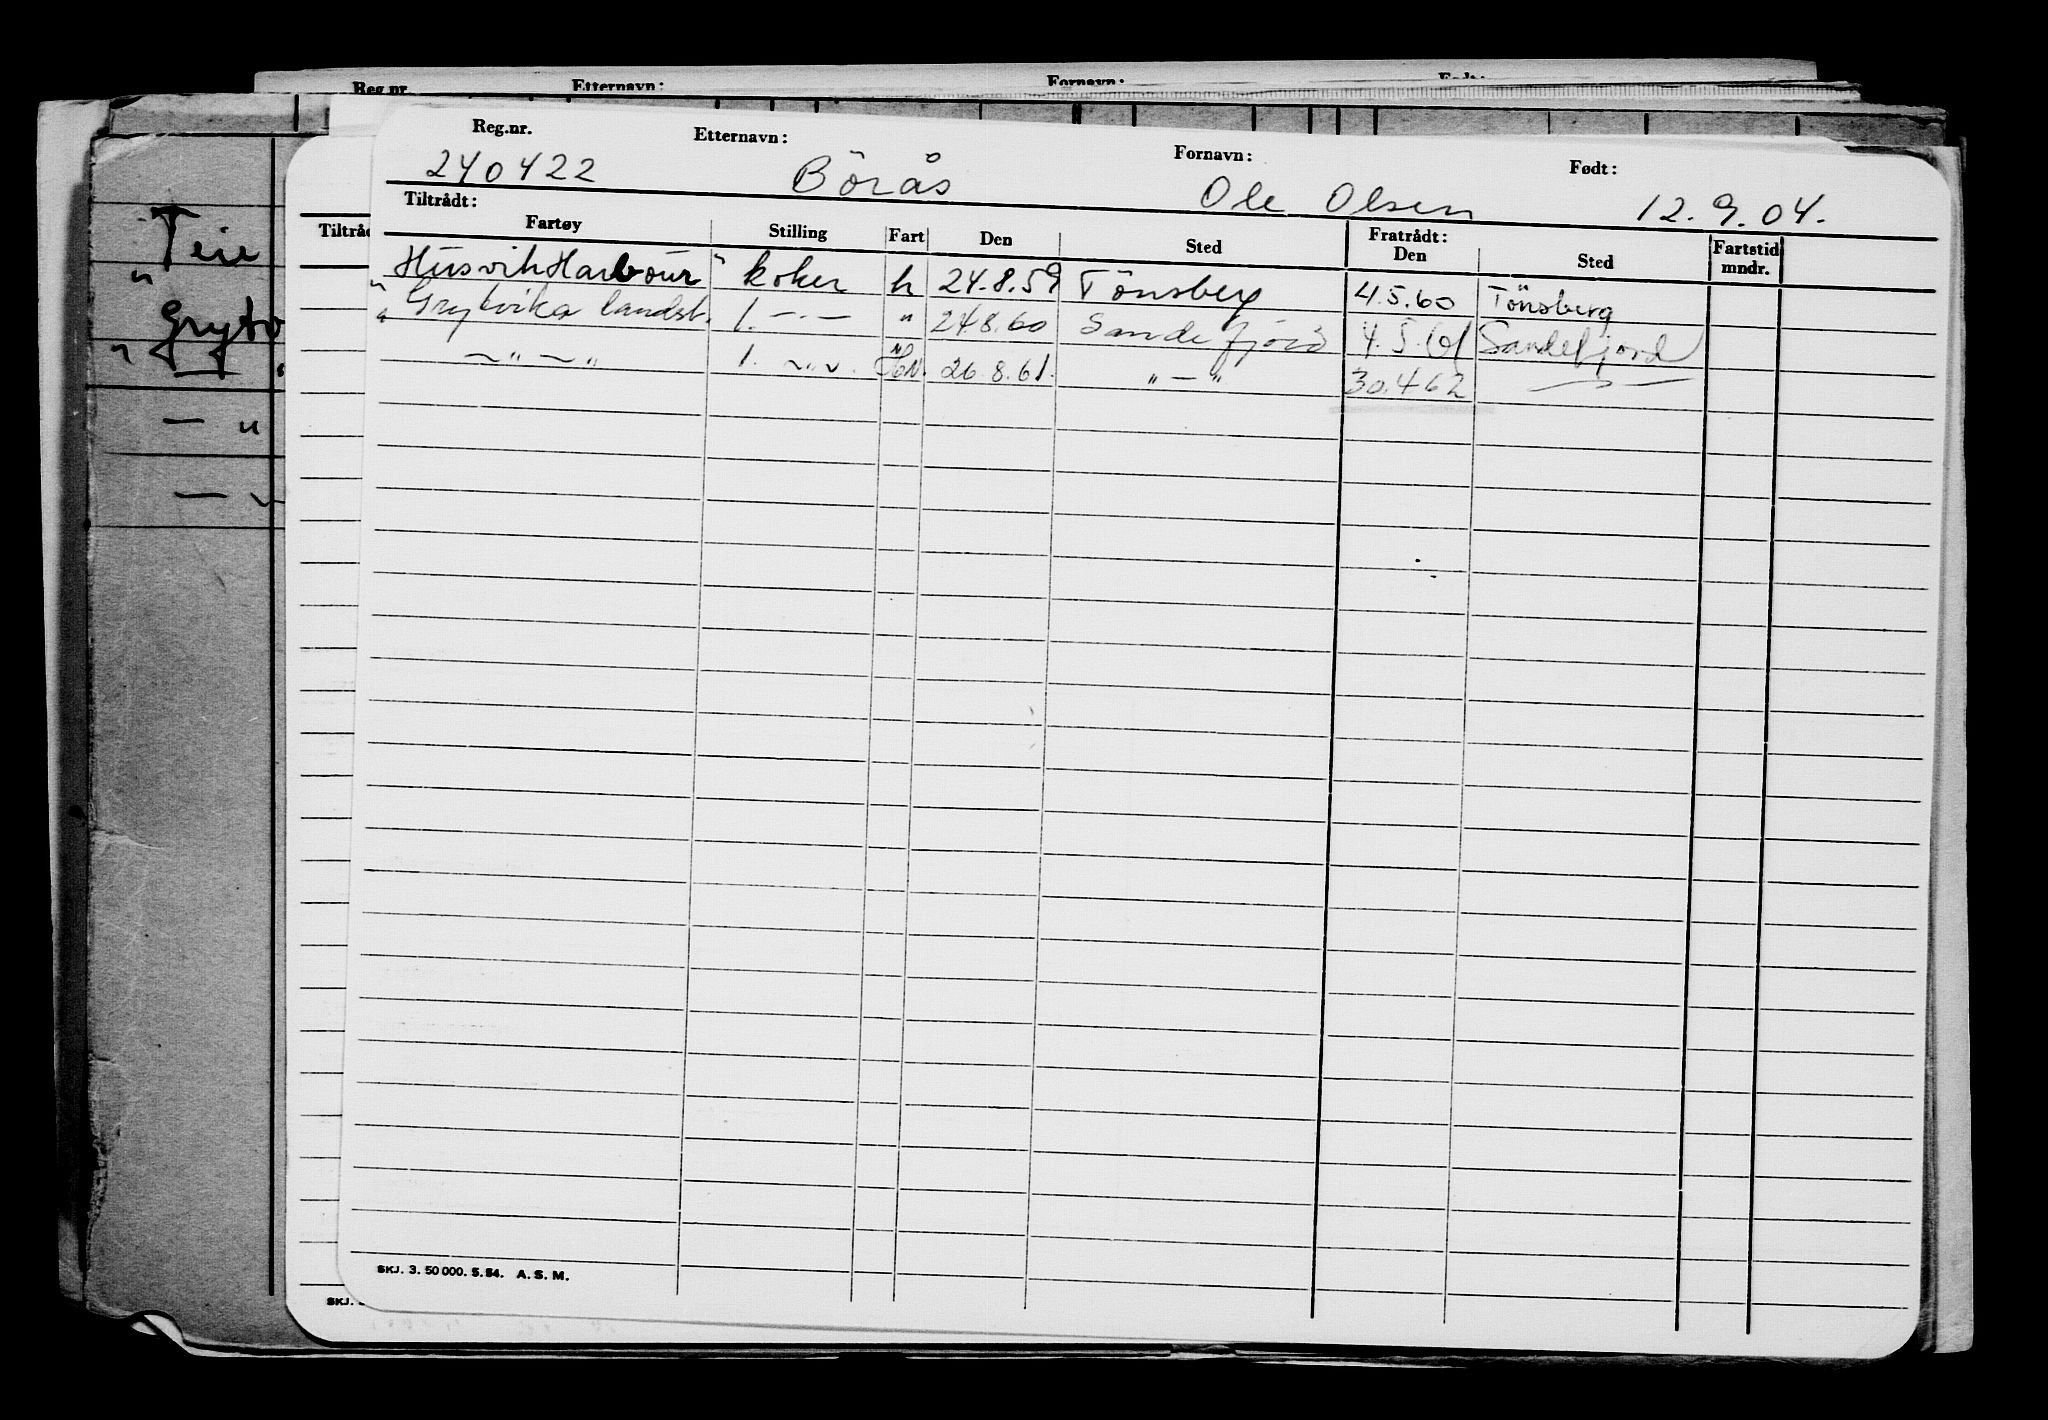 Reg.nr. Etternavn: Fornavn: Født:
Reg.nr. Etternavn: Fornavn: Født:
240422 Börås Ole Olsen 12.9.04.
Tiltrådt: Fratrådt:
Fartøy Stilling Fart Den Sted Den Sted Fartstid mndr.
"Husvik Harbour" koker h 24.8.59 Tönsberg 4.5.60 Tönsberg
" Grytvika landst. 1. -"- " 24.8.60 Sandefjord 4.5.61 Sandefjord
-"-" 1. -"-. 26.8.61. "-" 30.4.62 -"-
SKJ. 3. 50 000. 5.54. A. S. M.
Tiltråd
SKJ.
Teie
"Grytv
"
- "
-